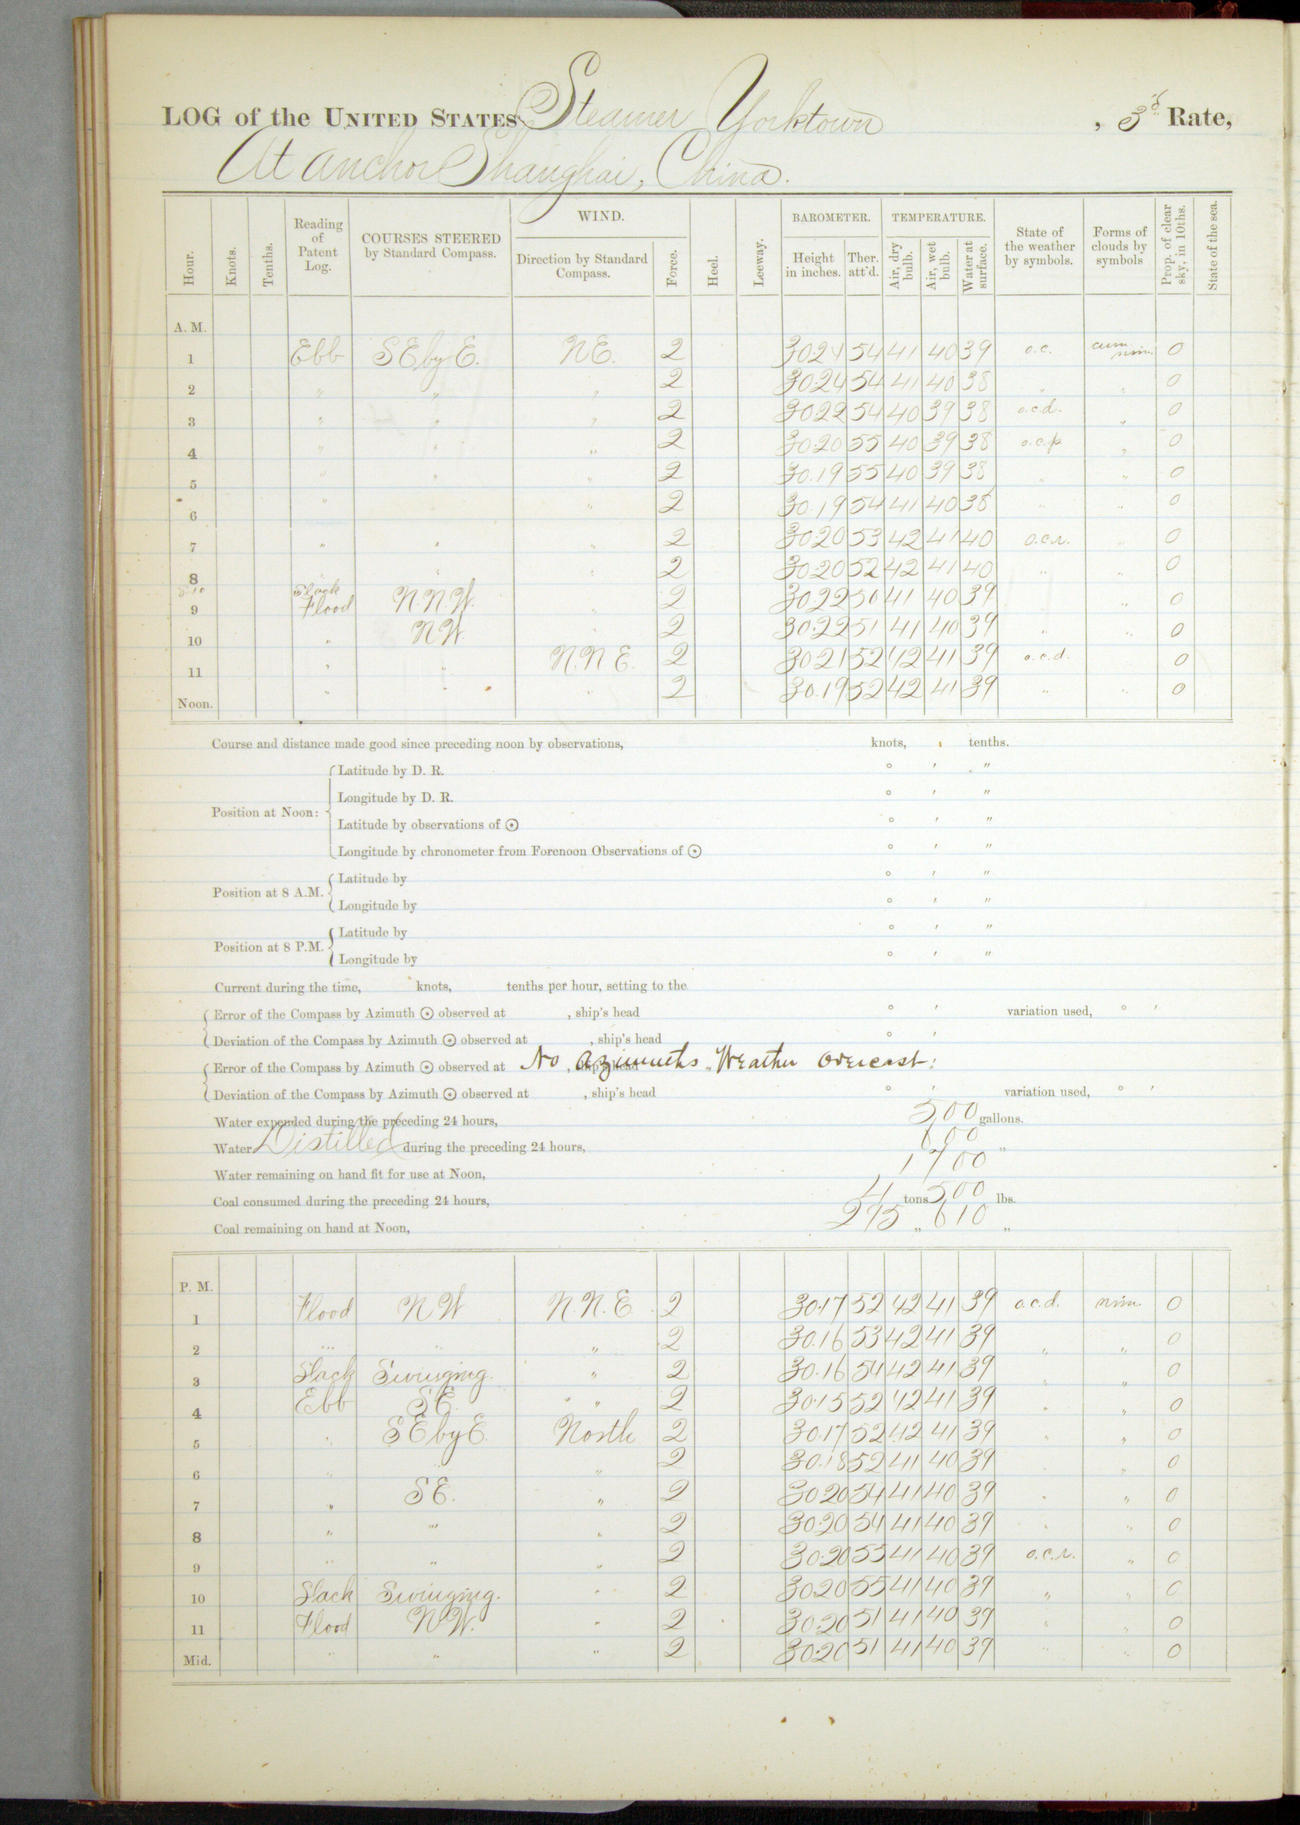 LOG of the UNITED STATES Steamer Yorktown, 3d Rate,
At anchor Shanghai, China.
Hour. Knots. Tenths. Reading of Patent Log. COURSES STEERED by Standard Compass. WIND. Direction by Standard Compass. Force. Heel. Leeway. BAROMETER. Height in inches. Ther. att'd. TEMPERATURE. Air, dry bulb. Air, wet bulb. Water at surface. State of the weather by symbols. Forms of clouds by symbols Prop. of clear sky, in 10ths. State of the sea.
A. M.
1 Ebb SE by E. NE. 2 30.24 54 41 40 39 o.c. cum. nim. 0
2 " " " 2 30.24 54 41 40 38 " " 0
3 " " " 2 30.22 54 40 39 38 o.c.d. " 0
4 " " " 2 30.20 55 40 39 38 o.c.p. " 0
5 " " " 2 30.19 55 40 39 38 " " 0
6 " " 2 30.19 54 41 40 38 " " 0
7 " " " 2 30.20 53 42 41 40 o.c.r. " 0
8 " " 2 30.20 52 42 41 40 " " 0
Slack
9 Flood N.N.W. " 2 30.22 50 41 40 39 " 0
10 " NW. " 2 30.22 51 41 40 39 " " 0
11 " " N.N.E. 2 30.21 52 42 41 39 o.c.d. 0
Noon. " " " 2 30.19 52 42 41 39 " " 0
Course and distance made good since preceding noon by observations, knots, tenths.
Latitude by D. R. ° ' "
Longitude by D. R. ° ' "
Position at Noon:
Latitude by observations of ☉ ° ' "
Longitude by chronometer from Forenoon Observations of ☉ ° ' "
Latitude by ° ' "
Position at 8 A.M.
Longitude by ° ' "
Latitude by ° ' "
Position at 8 P.M.
Longitude by ° ' "
Current during the time, knots, tenths per hour, setting to the
Error of the Compass by Azimuth ☉ observed at , ship's head ° ' variation used, ° '
Deviation of the Compass by Azimuth ☉ observed at , ship's head ° '
Error of the Compass by Azimuth ☉ observed at , ship's head No azimuths, Weather overcast.
Deviation of the Compass by Azimuth ☉ observed at , ship's head ° ' variation used, ° '
Water expended during the preceding 24 hours, 500 gallons.
Water Distilled during the preceding 24 hours, 600 "
Water remaining on hand fit for use at Noon, 1700
Coal consumed during the preceding 24 hours, 4 tons 500 lbs.
Coal remaining on hand at Noon, 275 " 610 "
P. M.
1 Flood NW N.N.E. 2 30.17 52 42 41 39 o.c.d. nim. 0
2 " " " 2 30.16 53 42 41 39 " " 0
3 Slack Swinging. " 2 30.16 54 42 41 39 " " 0
4 Ebb SE. " 2 30.15 52 42 41 39 " " 0
5 " SE by E. North 2 30.17 52 42 41 39 " " 0
6 " " 2 30.18 52 41 40 39 " " 0
7 " SE. " 2 30.20 54 41 40 39 " " 0
8 " " " 2 30.20 54 41 40 39 " " 0
9 " " " 2 30.20 55 41 40 39 o.c.r. " 0
10 Slack Swinging. " 2 30.20 55 41 40 39 " " 0
11 Flood NW. " 2 30.20 51 41 40 39 " " 0
Mid. " " " 2 30.20 51 41 40 39 " " 0